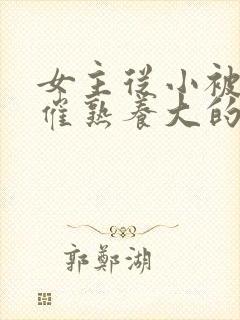 女主從小被
催熟養大的
郭鄭湖